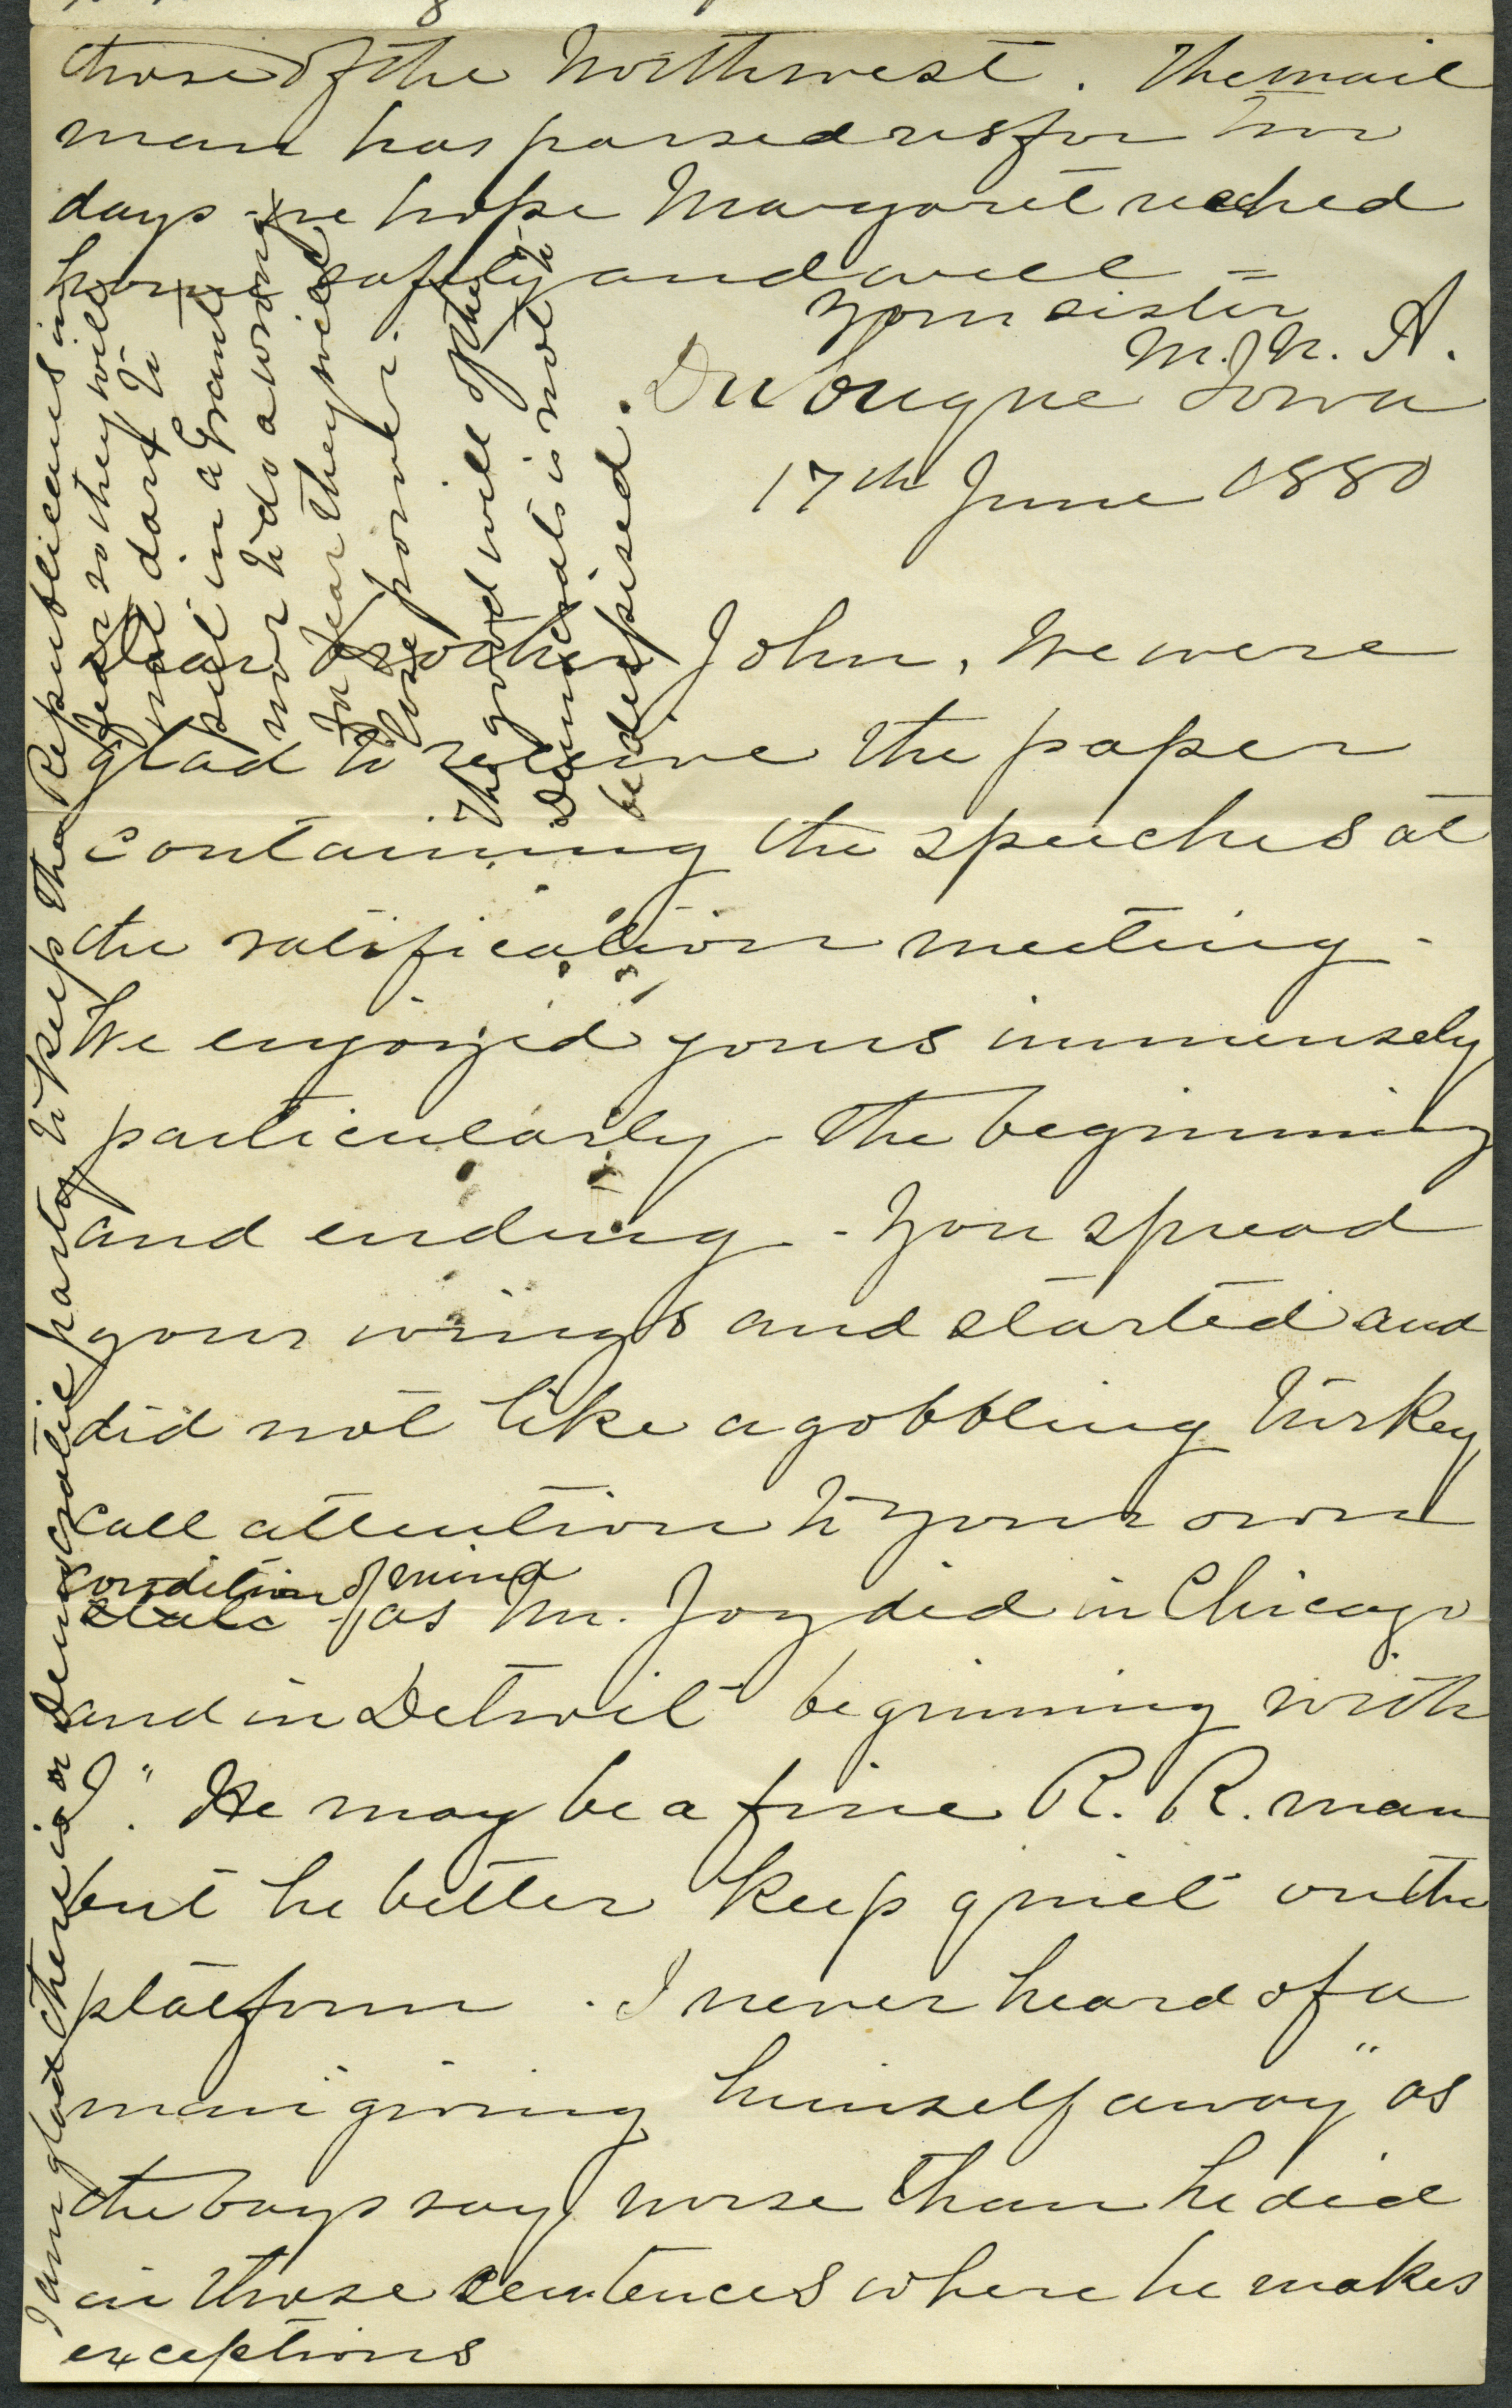 those of the Northwest. The mail
man has passed us for two
days - we hope Margaret reached
home safely and well =
Your sister
M. N. A.
Dubuque Iowa
17th June 1880
Dear brother John, We were
glad to receive the paper
containing the speeches at
the ratification meeting -
We enjoyed yours immensely
particularly the beginning
and ending - You spread
your wings and started and
did not like a gobbling turkey
call attention to your own
condition of mind
state as Mr. Joy did in Chicago
and in Detroit beginning with
"I". He may be a fine R. R. man
but he better keep quiet on the
platform. I never heard of a
man "giving himself away" as
the boys say worse than he did
in those sentences where he makes
exceptions
I am glad there is a Democratic party to keep the Republicans in
fear so they will
not dare to
put in a Grant
nor to do a wrong
for fear they will
lose power.
The good will of the
Democrats is not to
be despised.